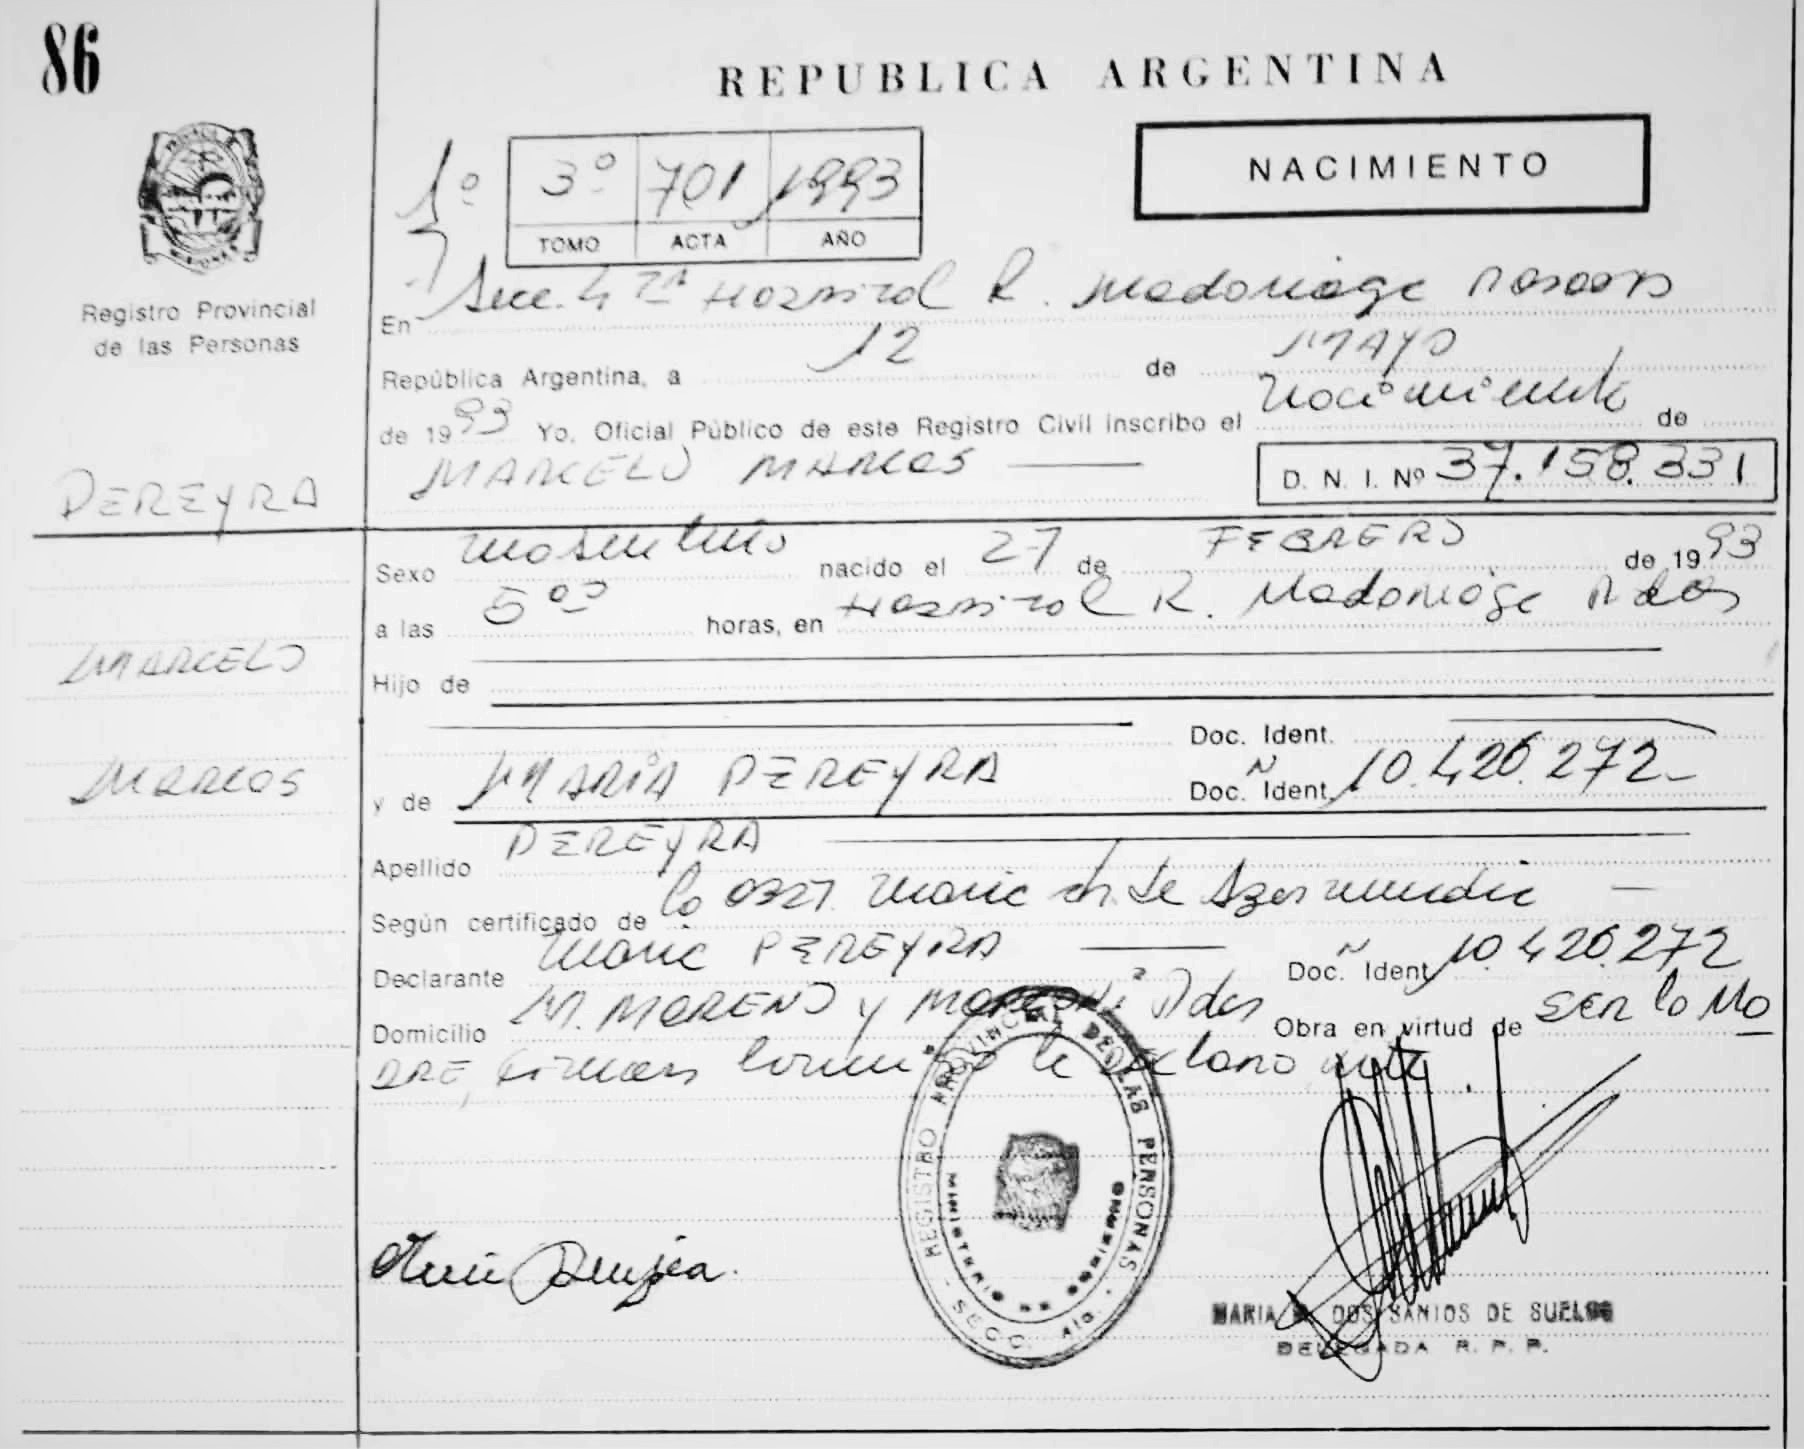 86
REPUBLICA ARGENTINA
NACIMIENTO
1º
3º 701 1993
TOMO ACTA AÑO
Registro Provincial
de las Personas
En Secc. 4 TA Hospital R. Madariaga Posadas
República Argentina, a 12 de MAYO
de 1993 Yo, Oficial Público de este Registro Civil inscribo el Nacimiento de
MARCELO MARCOS
D. N. I. Nº 37.158.331
PEREYRA
MARCELO
MARCOS
Sexo masculino nacido el 27 de FEBRERO de 1993
a las 5 horas, en Hospital R. Madariaga Pdas
Hijo de
Doc. Ident.
y de MARIA PEREYRA Doc. Ident. N 10.426.272
Apellido PEREYRA
Según certificado de la Obst. Maria de
Declarante Maria PEREYRA Doc. Ident. N 10.426.272
Domicilio M. MORENO y Pdas Obra en virtud de ser la Ma
DRE, conmigo la declarante.
REGISTRO PROVINCIAL DE LAS PERSONAS
MINISTERIO DE GOBIERNO
SECC. 4ta.
MARIA DOS SANTOS DE SUELOS
DELEGADA R. P. P.